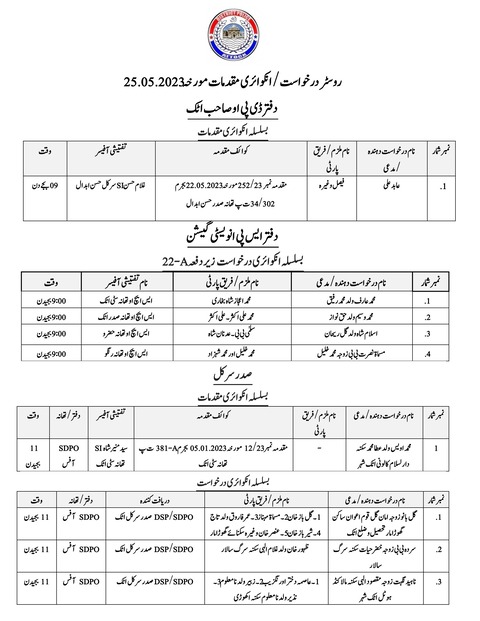 روسٹر درخواست / انکوائری مقدمات مورخہ 25.05.2023
دفتر ڈی پی او صاحب اٹک
بسلسلہ انکوائری مقدمات
نمبر شمار نام درخواست دہندہ / مدعی نام ملزم / فریق پارٹی کوائف مقدمہ تفتیشی آفیسر وقت
1. عابد علی فیصل وغیرہ مقدمہ نمبر 252/23 مورخہ 22.05.2023 بجرم 302/34 ت پ تھانہ صدر حسن ابدال غلام حسن SI سرکل حسن ابدال 09 بجے دن
دفتر ایس پی انویسٹی گیشن
بسلسلہ انکوائری درخواست زیر دفعہ 22-A
نمبر شمار نام درخواست دہندہ / مدعی نام ملزم / فریق پارٹی نام تفتیشی آفیسر وقت
1. محمد عارف ولد محمد رفیق محمد اعجاز شاہ بخاری ایس ایچ او تھانہ سٹی اٹک 9:00 بجیدن
2. محمد وسیم ولد حق نواز محمد علی اکثر۔ علی اکثر ایس ایچ او تھانہ صدر اٹک 9:00 بجیدن
3. اسلام شاہ ولد گل ریحان سلمیٰ بی بی۔ عدنان شاہ ایس ایچ او تھانہ حضرو 9:00 بجیدن
4. مسماۃ نصرت بی بی زوجہ محمد خلیل محمد خلیل اور محمد شہزاد ایس ایچ او تھانہ رنگو 9:00 بجیدن
صدر سرکل
بسلسلہ انکوائری مقدمات
نمبر شمار نام درخواست دہندہ / مدعی نام ملزم / فریق پارٹی کوائف مقدمہ تفتیشی آفیسر دفتر / تھانہ وقت
1 محمد اویس ولد عطا محمد سکنہ دارلسلام کالونی اٹک شہر - مقدمہ نمبر 12/23 مورخہ 05.01.2023 بجرم 381-A ت پ تھانہ سٹی اٹک سید منیر شاہ SI تھانہ سٹی اٹک SDPO آفس 11 بجیدن
بسلسلہ انکوائری درخواست
نمبر شمار نام درخواست دہندہ / مدعی نام ملزم / فریق پارٹی دریافت کنندہ دفتر / تھانہ وقت
1. گل بانو زوجہ امان گل قوم اعوان ساکن گھوڑامار تحصیل و ضلع اٹک 1۔ گل باز خان 2۔ مسماۃ مہناز 3۔ عمر فاروق ولد تاج 4۔ شیر باز خان 5۔ خضر خان وغیرہ سکنائے گھوڑامار DSP/SDPO صدر سرکل اٹک SDPO آفس 11 بجیدن
2. سردہ بی بی زوجہ خضر حیات سکنہ سرگ سالار ظہور خان ولد غلام الٰہی سکنہ سرگ سالار DSP/SDPO صدر سرکل اٹک SDPO آفس 11 بجیدن
3. ناہید نگہت زوجہ مقصود الٰہی سکنہ مالاکنڈ ہوٹل اٹک شہر 1۔ عاصمہ دختر اورنگزیب 2۔ زبیر ولد نامعلوم 3۔ نذیر ولد نامعلوم سکنہ انکوڑی DSP/SDPO صدر سرکل اٹک SDPO آفس 11 بجیدن